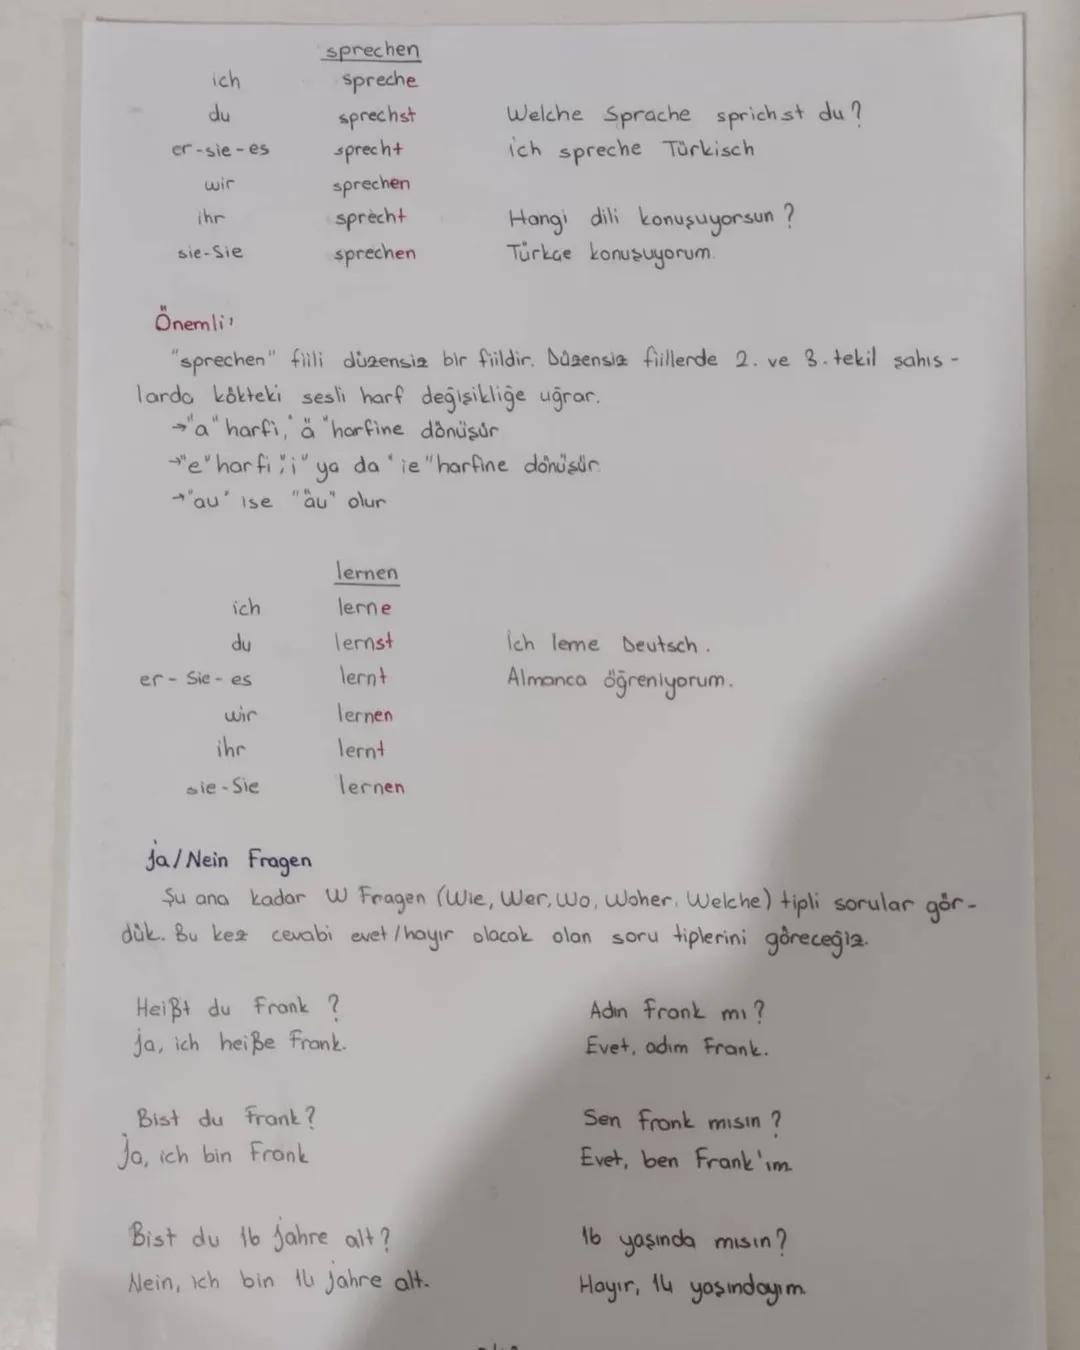 sprechen
ich spreche
du sprechst Welche Sprache sprichst du?
er-sie-es sprecht ich spreche Türkisch
wir sprechen
ihr sprecht Hangi dili konuşuyorsun?
sie-Sie sprechen Türkçe konuşuyorum.
Önemli!
"sprechen" fiili düzensiz bir fiildir. Düzensiz fiillerde 2. ve 3. tekil şahıs-
larda kökteki sesli harf değişikliğe uğrar.
→"a" harfi, "ä" harfine dönüşür
→"e" harfi; "i" ya da "ie" harfine dönüşür.
→"au" ise "äu" olur
lernen
ich lerne
du lernst Ich lerne Deutsch.
er-Sie-es lernt Almanca öğreniyorum.
wir lernen
ihr lernt
sie-Sie lernen
ja/Nein Fragen
Şu ana kadar W Fragen (Wie, Wer, Wo, Woher, Welche) tipli sorular gör-
dük. Bu kez cevabi evet/hayır olacak olan soru tiplerini göreceğiz.
Heißt du Frank? Adın Frank mı?
ja, ich heiße Frank. Evet, adım Frank.
Bist du Frank? Sen Frank mısın?
Ja, ich bin Frank Evet, ben Frank'ım.
Bist du 16 jahre alt? 16 yaşında mısın?
Nein, ich bin 14 jahre alt. Hayır, 14 yaşındayım.